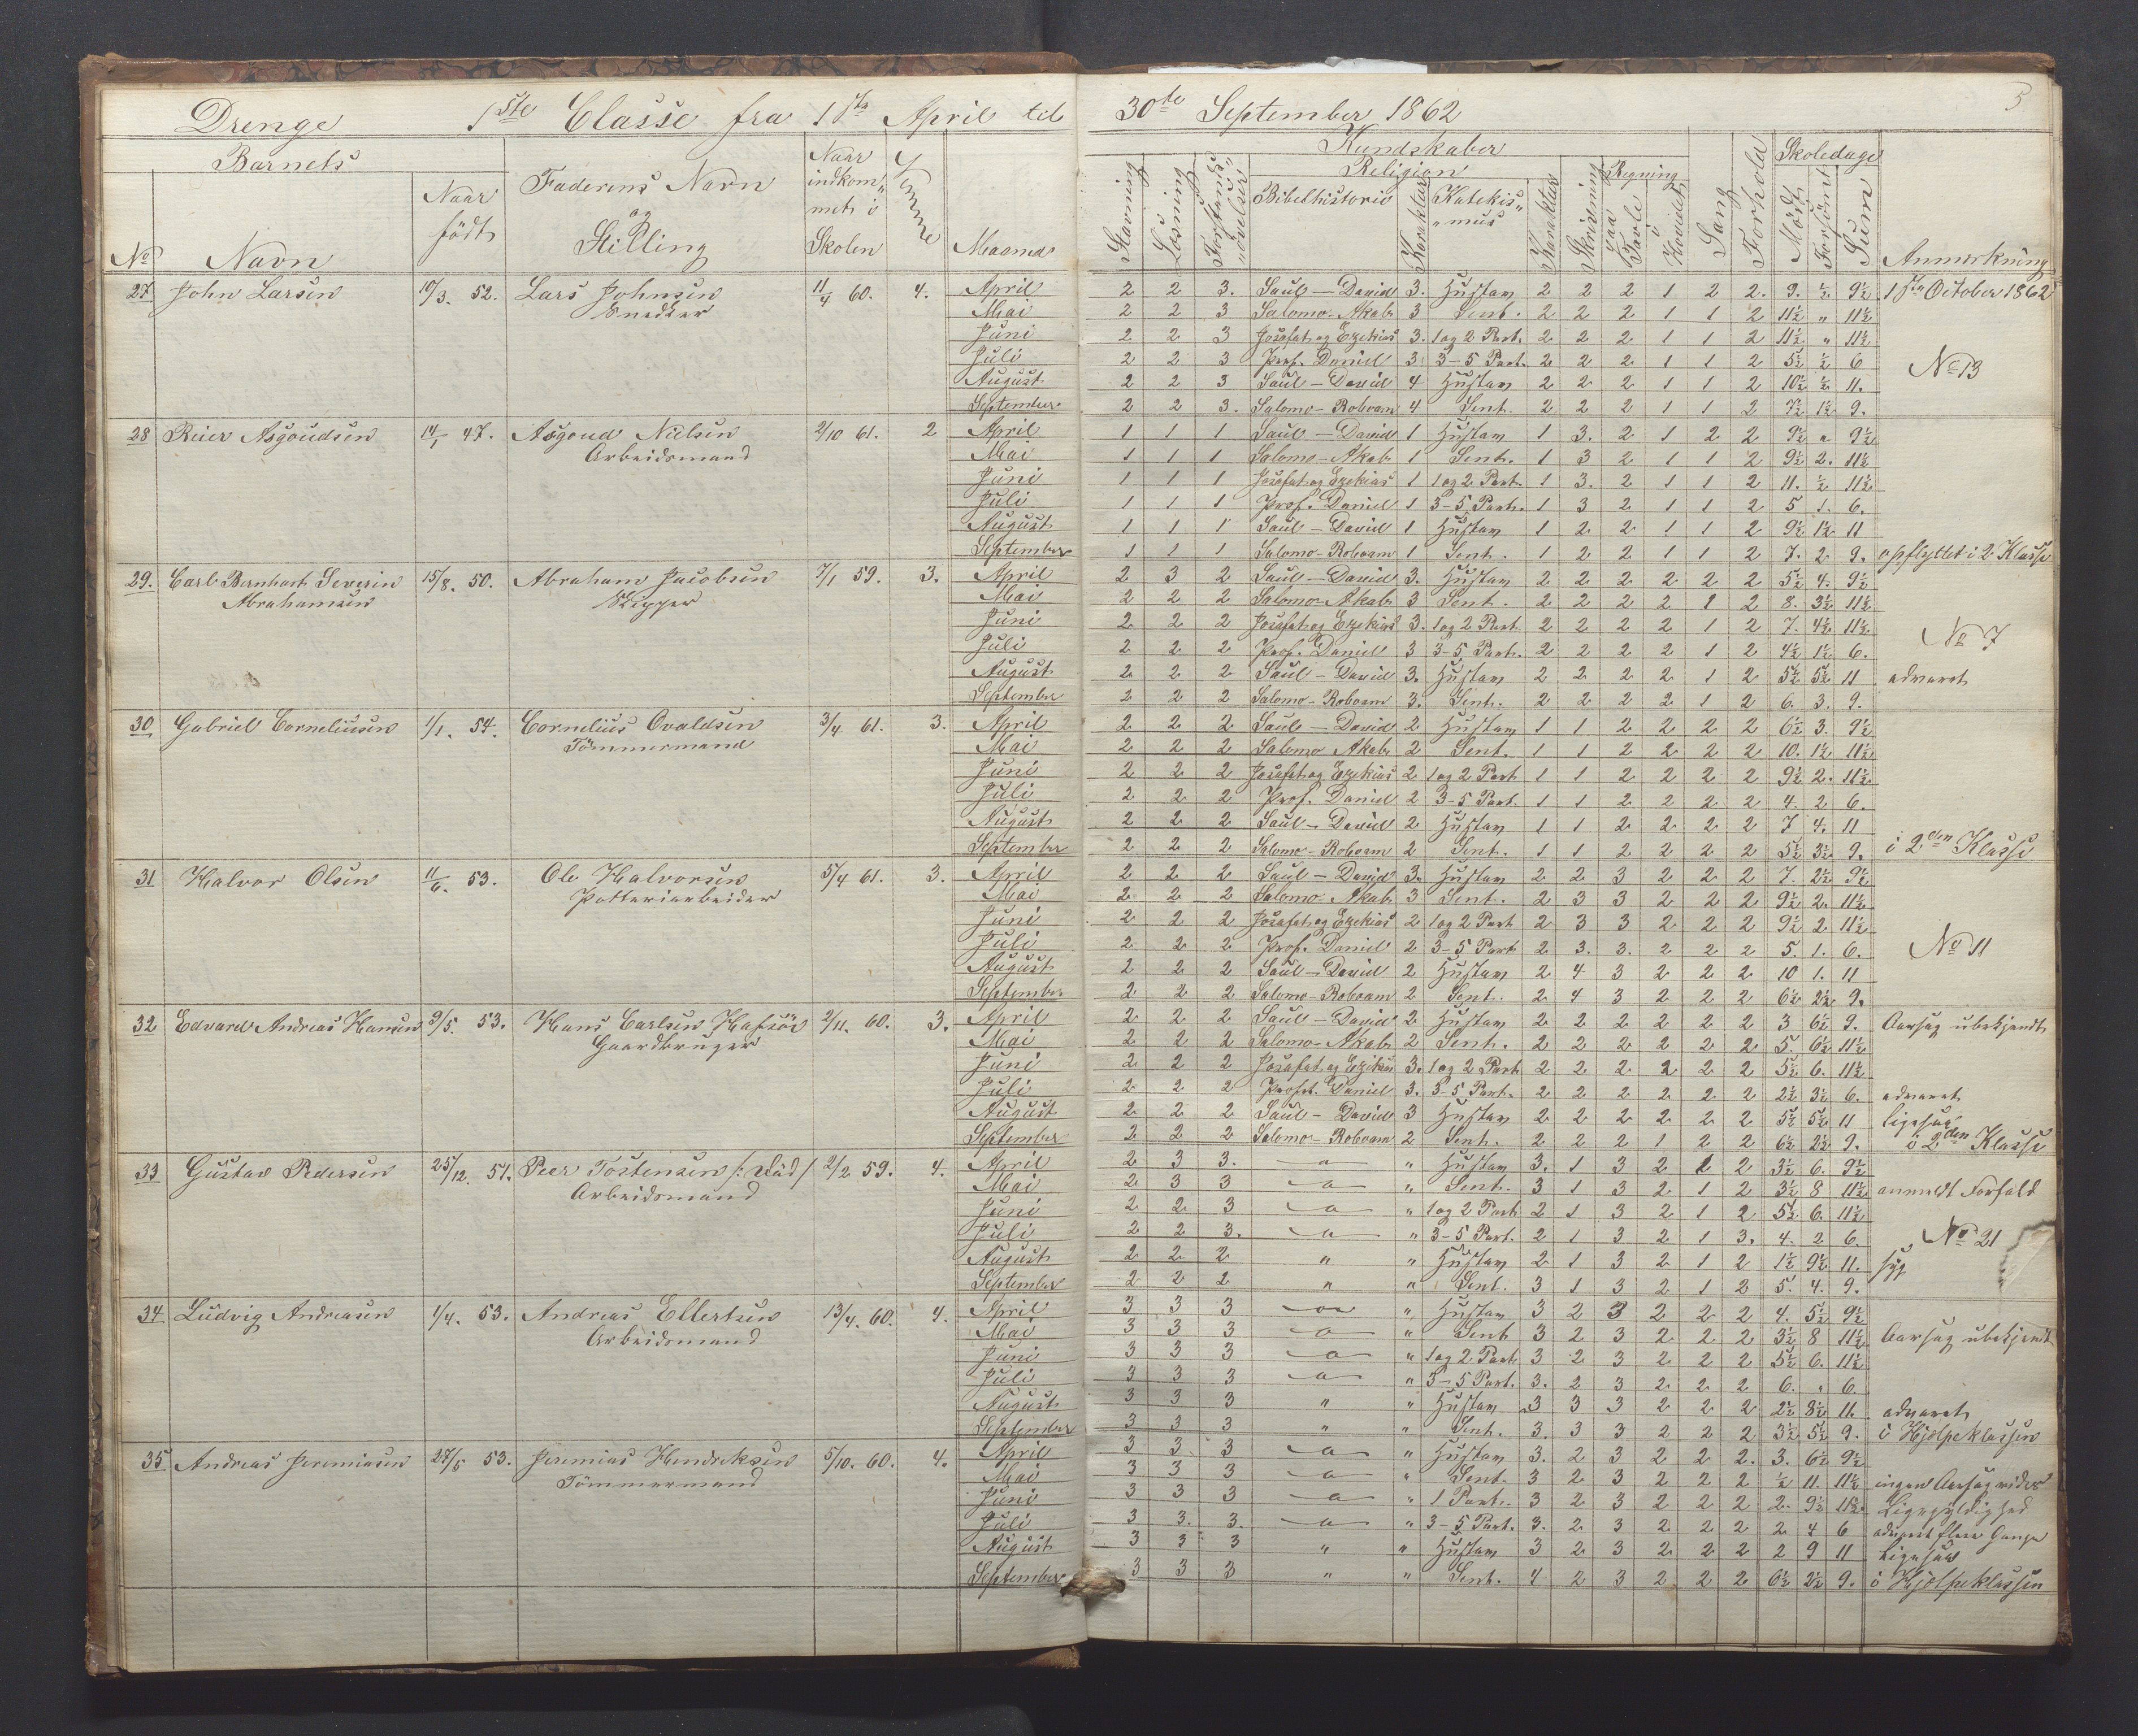 Drenge 1ste Classe fra 1ste April til 30te September 1862 3
Barnets Faderens Navn og Stilling Naar indkommet i Skolen Evne Maaned Kundskaber Skoledage
No Navn Naar født Stavning Læsning Forstandsøvelser Religion Bibelhistorie Karakter Katekismus Karakter Skrivning Regning paa Tavle i Hovedet Sang Forhold Mødt Forsömt Sum Anmærkning
27 John Larsen 10/3. 52. Lars Johnsen 11/4 60. 4. April 2 2 3. Saul – David 3. Hustav 2 2 2 1 2 2. 9. ½ 9½ 1ste October 1862
Snedker Mai 2 2 3 Salomo – Akab 3 Sent. 2 2 2 1 1 2 11½ " 11½
Juni 2 2 3 Josafat og Ezekias 3. 1 og 2 Part. 2 2 2 1 1 2 11½ " 11½
Juli 2 2 3 Prof. Daniel 3 3-5 Part. 2 2 2 1 1 2 5½ ½ 6 No 13
August 2 2 3 Saul – David 4 Hustav 2 2 2 1 1 2 10½ ½ 11.
September 2 2 3. Salomo – Roboam 4 Sent. 2 2 2 1 1 2 7½ 1½ 9.
28 Reier Asgoudsen 14/1 47. Asgoud Nielsen 2/10 61. 2 April 1 1 1 Saul – David 1 Hustav 1 3. 2 1 2 2 9½ " 9½
Arbeidsmand Mai 1 1 1 Salomo – Akab 1 Sent. 1 3 2 1 1 2 9½ 2. 11½
Juni 1 1 1 Josafat og Ezekias 1 1 og 2 Part. 1 3. 2 1 1 2 11. ½ 11½
Juli 1 1 1 Prof. Daniel 1 3-5 Part. 1 3 2 1 1 2 5 1. 6.
August 1 1 1 Saul – David 1 Hustav 1 2 2 1 1 2 9½ 1½ 11
September 1 1 1 Salomo – Roboam 1 Sent. 1 2 2 1 1 2 7. 2. 9. opflyttet i 2. Klasse
29. Carl Bernhart Severin 15/8. 50. Abraham Jacobsen 7/1 59. 3. April 2 3 2 Saul – David 3. Hustav 2 2 2 2 2 2 5½ 4. 9½
Abrahamsen Skipper Mai 2 2 2 Salomo – Akab 3 Sent. 2 2 2 2 1 2 8. 3½ 11½
Juni 2 2 2 Josafat og Ezekias 3. 1 og 2 Part 2 2 2 2 1 2 7. 4½ 11½
Juli 2 2 2 Prof. Daniel 3 3-5 Part. 2 2 2 2 1 2 4½ 1½ 6. No 7
August 2 2 2 Saul – David 3. Hustav 2 2 2 2 1 2 5½ 5½ 11 advaret
September 2 2 2 Salomo – Roboam 3. Sent. 2 2 2 2 1 2 6. 3. 9.
30 Gabriel Corneliusen 1/1. 54. Cornelius Ovaldsen 3/4 61. 3. April 2 2 2 Saul – David 2 Hustav 1 1 2 2 2 2 6½ 3. 9½
Tömmermand Mai 2 2 2 Salomo Akab 2 Sent. 1 1 2 2 2 2 10. 1½ 11½
Juni 2 2 2 Josafat og Ezekias 2 1 og 2 Part 1 1 2 2 2 2 9½ 2. 11½
Juli 2 2 2 Prof. Daniel 2 3-5 Part. 1 1 2 2 2 2 4. 2 6.
August 2 2 2 Saul – David 2 Hustav 1 1 2 2 2 2 7 4. 11
September 2 2 2 Salomo – Roboam 2 Sent. 1 1 2 2 2 2 5½ 3½ 9. i 2den Klasse
31 Halvor Olsen 11/6. 53. Ole Halvorsen 5/4 61. 3. April 2 2 2 Saul – David 3. Hustav 2 2 3 2 2 2 7. 2½ 9½
Potteriarbeider Mai 2 2 2 Salomo – Akab 3 Sent. 2 3 3 2 2 2 9½ 2. 11½
Juni 2 2 2 Josafat og Ezekias 2 1 og 2 Part 2 3 3 2 2 2 9½ 2 11½
Juli 2 2 2 Prof. Daniel 2 3-5 Part 2 3. 3. 2 2 2 5. 1. 6. No 11
August 2 2 2 Saul – David 2 Hustav 2 4 3 2 2 2 10 1. 11
September 2 2 2 Salomo – Roboam 2 Sent. 2 4 3 2 2 2 6½ 2½ 9.
32 Edvard Andreas Hansen 9/5. 53. Hans Carlsen Hafsöe 2/11. 60. 3. April 2 2 2 Saul – David 2 Hustav 2 2 2 2 2 2 3 6½ 9. Aarsag ubekjendt
Gaardbruger Mai 2 2 2 Salomo – Akab 2 Sent. 2 2 2 2 2 2 5. 6½ 11½
Juni 2 2 2 Josafat og Ezekias 3. 1 og 2 Part 2 2 2 2 2 2 5½ 6. 11½
Juli 2 2 2 Profet. Daniel 3. 3-5 Part. 2 2 2 2 2 2 2½ 3½ 6. advaret
August 2 2 2 Saul – David 3 Hustav 2 2 2 2 2 2 5½ 5½ 11 ligesaa
September 2 2 2 Salomo – Roboam 2 Sent. 2 2 2 1 2 2 6½ 2½ 9. i 2den Klasse
33 Gustav Pedersen 25/12. 51. Peer Tostensen /: död / 2/2 59. 4. April 2 3 3. a " Hustav 3. 1 3 2 1 2 3½ 6. 9½
Arbeidsmand Mai 2 3 3 a " Sent. 3 1 3 2 1 2 3½ 8 11½ anmeldt Forfald
Juni 2 2 3 a " 1 og 2 Part 2 1 3 2 1 2 5½ 6. 11½
Juli 2 2 3. a " 3-5 Part. 2 1 3 2 1 3. 4. 2 6. No 21
August 2 2 2 " " Hustav 2 1 3 2 1 2 1½ 9½ 11. syg
September 2 2 2 " " Sent. 3 1 3 2 1 2 5. 4. 9.
34 Ludvig Andreasen 1/4. 53. Andreas Ellertsen 13/4. 60. 4. April 3 3 3 a " Hustav 3 2 3 2 2 2 4. 5½ 9½
Arbeidsmand Mai 3 3 3 a " Sent 3 2 3 2 2 2 3½ 8 11½ Aarsag ubekjendt
Juni 3 3 3 a " 1 og 2 Part 3 2 3 2 2 2 5½ 6. 11½
Juli 3 3 3 a " 3-5 Part. 3. 2 3 2 2 2 6. " 6
August 3 3 3 " " Hustav 3 3 3 2 2 2 2½ 8½ 11. advaret
September 3 3 3 " " Sent. 3. 3 3 2 2 2 3½ 5½ 9. i Hjelpeklassen
35 Andreas Jeremiasen 27/5 53. Jeremias Hendriksen 5/10. 60. 4. April 3 3 3 a " Hustav 3. 2 3 2 2 2. 3. 6½ 9½
Tömmermand Mai 3 3 3 a " Sent. 3 2 3 2 2 2 ½ 11. 11½ ingen Aarsag uden
Juni 3 3 3 a " 1 Part. 3 2 3 2 2 2 2. 9½ 11½ Ligegyldighed
Juli 3 3. 3. a " 3-5 Part. 3. 2 3 2 2 2 2 4 6 advaret flere Gange
August 3 3 3 " " Hustav 3 2 3 2 2 2 2 9 11 ligesaa
September 3 3 3 " " Sent. 4 2 3 2 2 2 6½ 2½ 9. i Hjelpeklassen